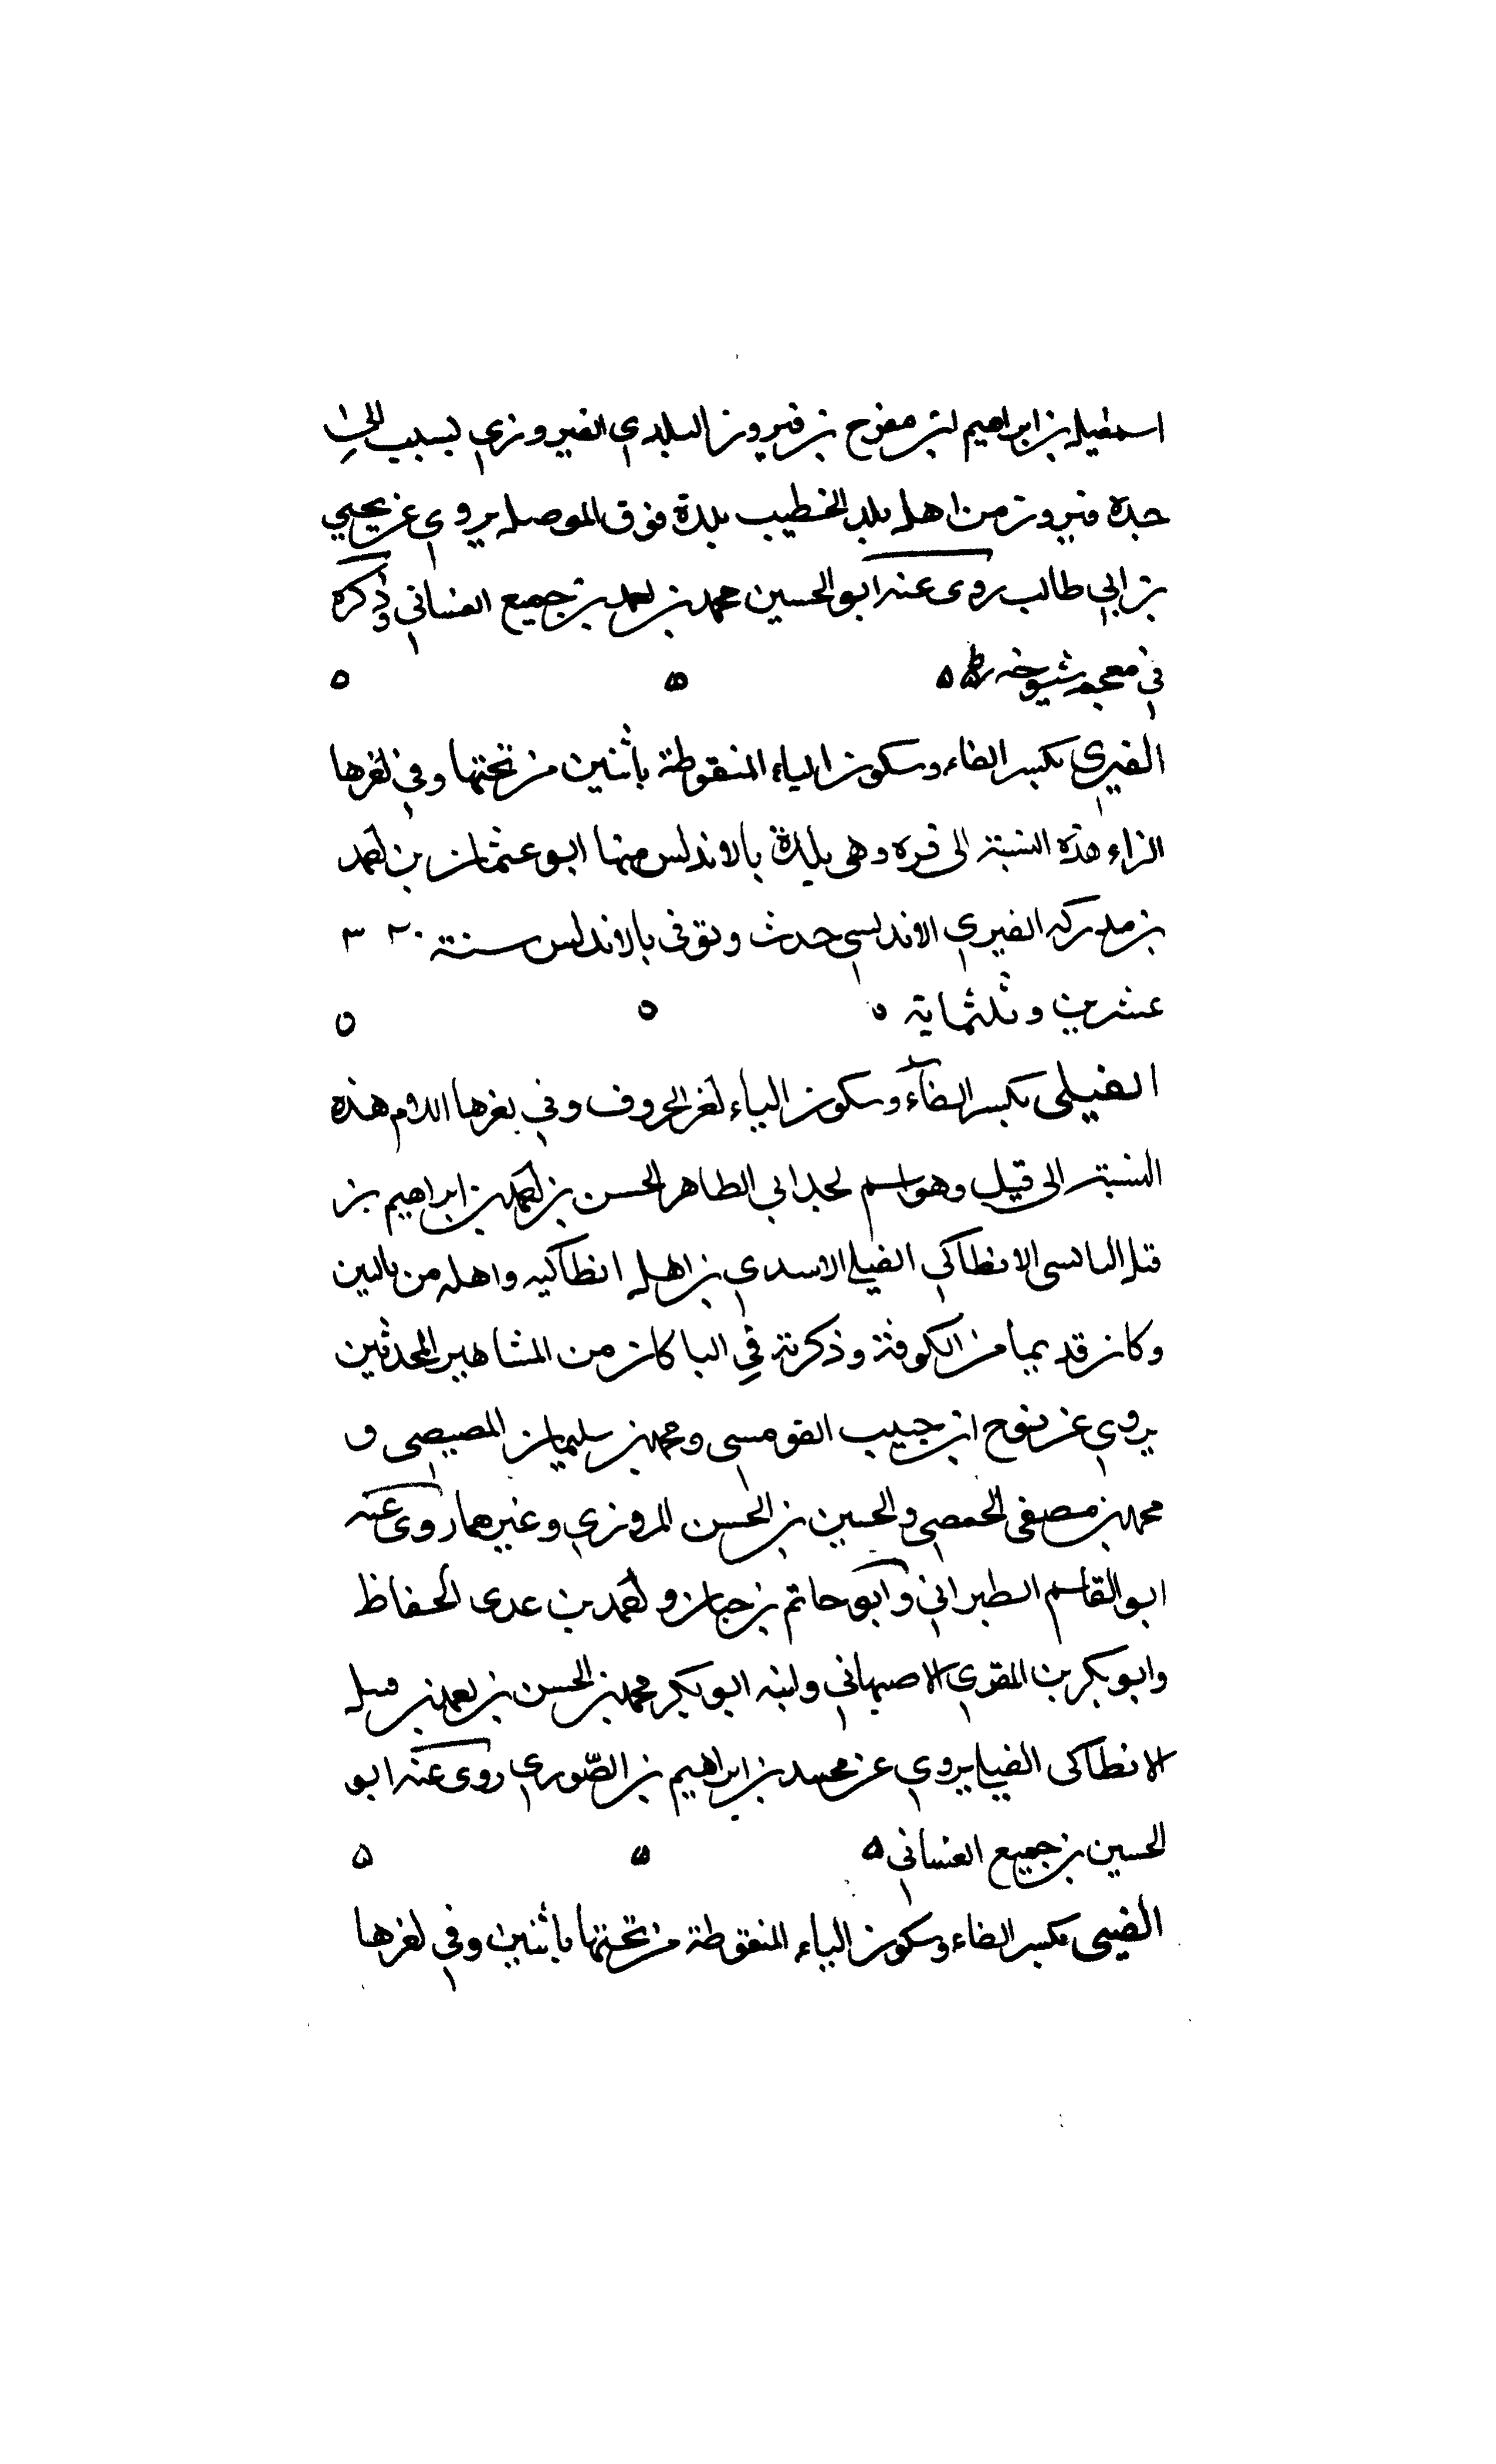 اسمعيل بن ابراهيم بن مفرح بن فيروز البلدي الفيروزي نسب الى
جده فيروز من اهل بلد الخطيب بلدة فوق الموصل يروي عن يحيي
بن ابي طالب روى عنه ابو الحسين محمد بن احمد بن جميع الغساني وذكره
في معجم شيوخه
الفيري بكسر الفاء وسكون الياء المنقوطة باثنين من تحتها وفي اخرها
الراء هذه النسبة الى فره وهى بلدة بالاندلس منها ابو عثمان بن احمد
بن مدركه الفيري الاندلسي حدث وتوفى بالاندلس سنة ٣٢٠
عشرين وثلثماية
الفيلى بكسر الفاء وسكون الياء اخر الحروف وفي اخرها اللام هذه
النسبة الى فيل وهو اسم لجد ابي الطاهر الحسن بن احمد بن ابراهيم بن
فيل البالسى الانطاكي الفيلي الاسدي من اهل انطاكيه واهله من بالس
وكان قديما من الكوفة وذكرته في البا كان من المشاهير المحدثين
يروي عن نوح ابن حبيب القومسى ومحمد بن سليمان المصيصى و
محمد بن مصفى الحمصي والحسين بن الحسن المروزي وغيرهما روى عنه
ابو القاسم الطبراني وابو حاتم بن حبان واحمد بن عدى الحفاظ
وابو بكر بن المقري الاصبهاني وابنه ابو بكر محمد بن الحسن بن احمد بن فيل
الانطاكى الفيلي يروي عن محمد بن ابراهيم بن الصوري روى عنه ابو
الحسين بن جميع الغساني
الفيى بكسر الفاء وسكون الياء المنقوطة من تحتها باثنين وفي اخرها